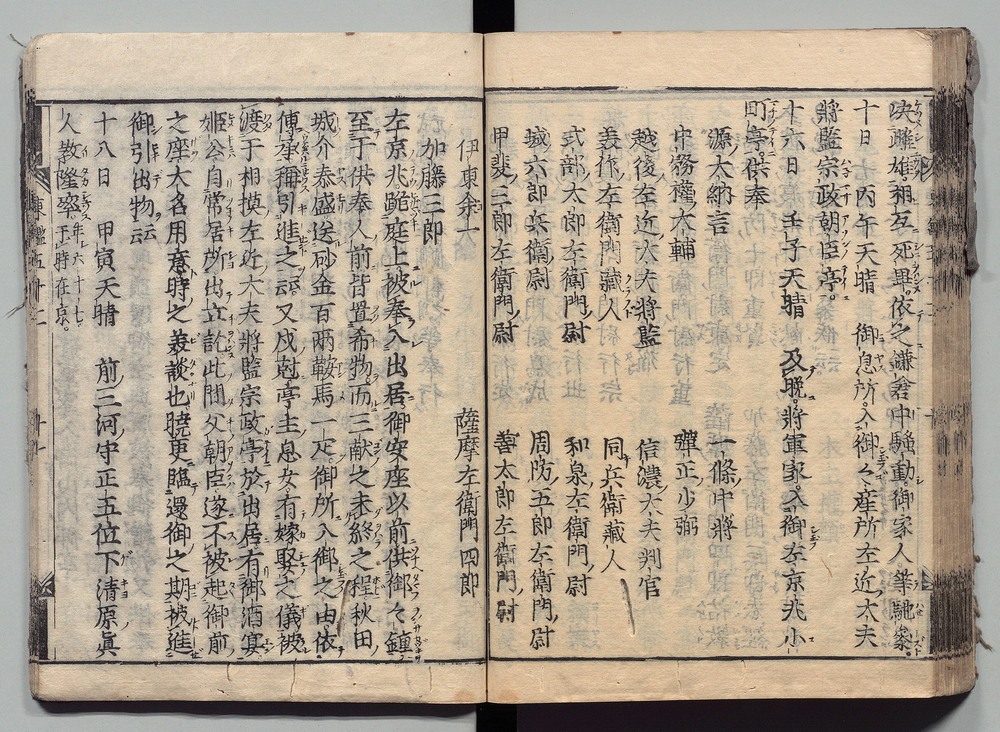 決雌雄相互死畢依之鎌倉中騒動御家人等馳参
十日　丙午天晴　御息所入御々産所左近大夫
将監宗政朝臣亭
十六日　壬子天晴　及晩将軍家入御左京兆小
町亭供奉
源大納言　一條中将
中務權大輔　彈正少弼
越後左近大夫將監　信濃大夫判官
美作左衛門藏人　同兵衛藏人
式部太郎左衛門尉　和泉左衛門尉
城六郎兵衛尉　周防五郎左衛門尉
甲斐三郎左衛門尉　善太郎左衛門尉
伊東余一　薩摩左衛門四郎
加藤三郎
左京兆跪庭上被奉入出居御安座以前供御々鐘
至于供奉人前皆置希物而三献之未終之程秋田
城介泰盛送砂金百兩鞍馬一疋御所入御之由依
傳承稱引進之云又戌尅亭主息女有嫁娶之儀被
渡于相摸左近大夫將監宗政亭於出居有御酒宴
姫公自常居所出立訖此間父朝臣遂不被起御前
之座大名用意時之美談也曉更臨還御之期被進
御引出物云云
十八日　甲寅天晴　前三河守正五位下清原眞
人教隆卒年六十七于時在京
東鑑五十二